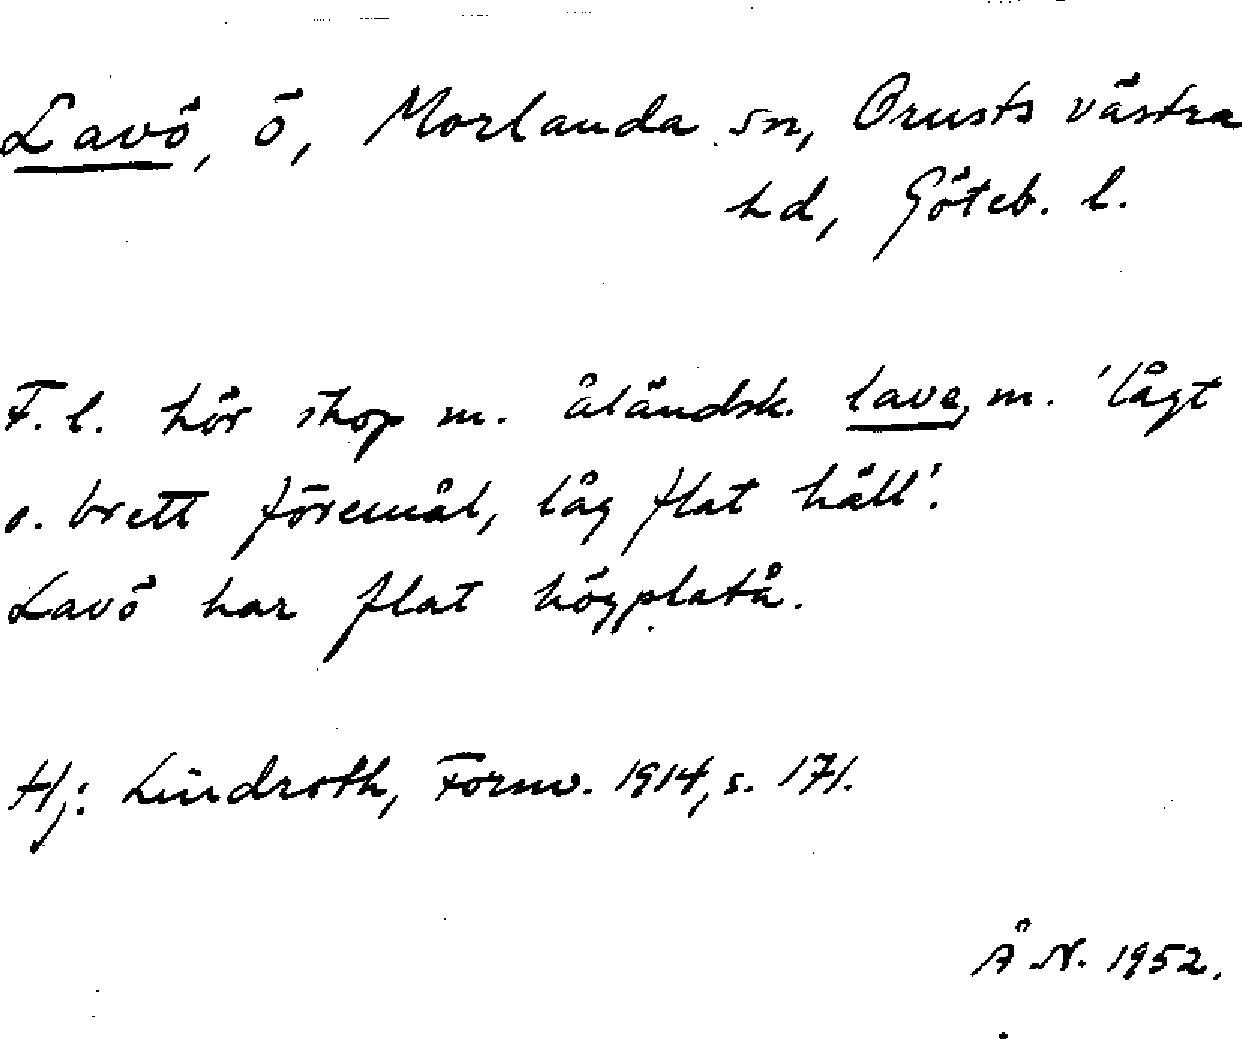 Lavö, ö, Morlanda sn, Orusts västra
hd, Göteb. l.
F. l. hör ihop m. åländsk. lave, m. 'lågt
o. brett föremål, låg flat häll'.
Lavö har flat högplatå.
Hj. Lindroth, Fornv. 1914, s. 171.
Å N. 1952.